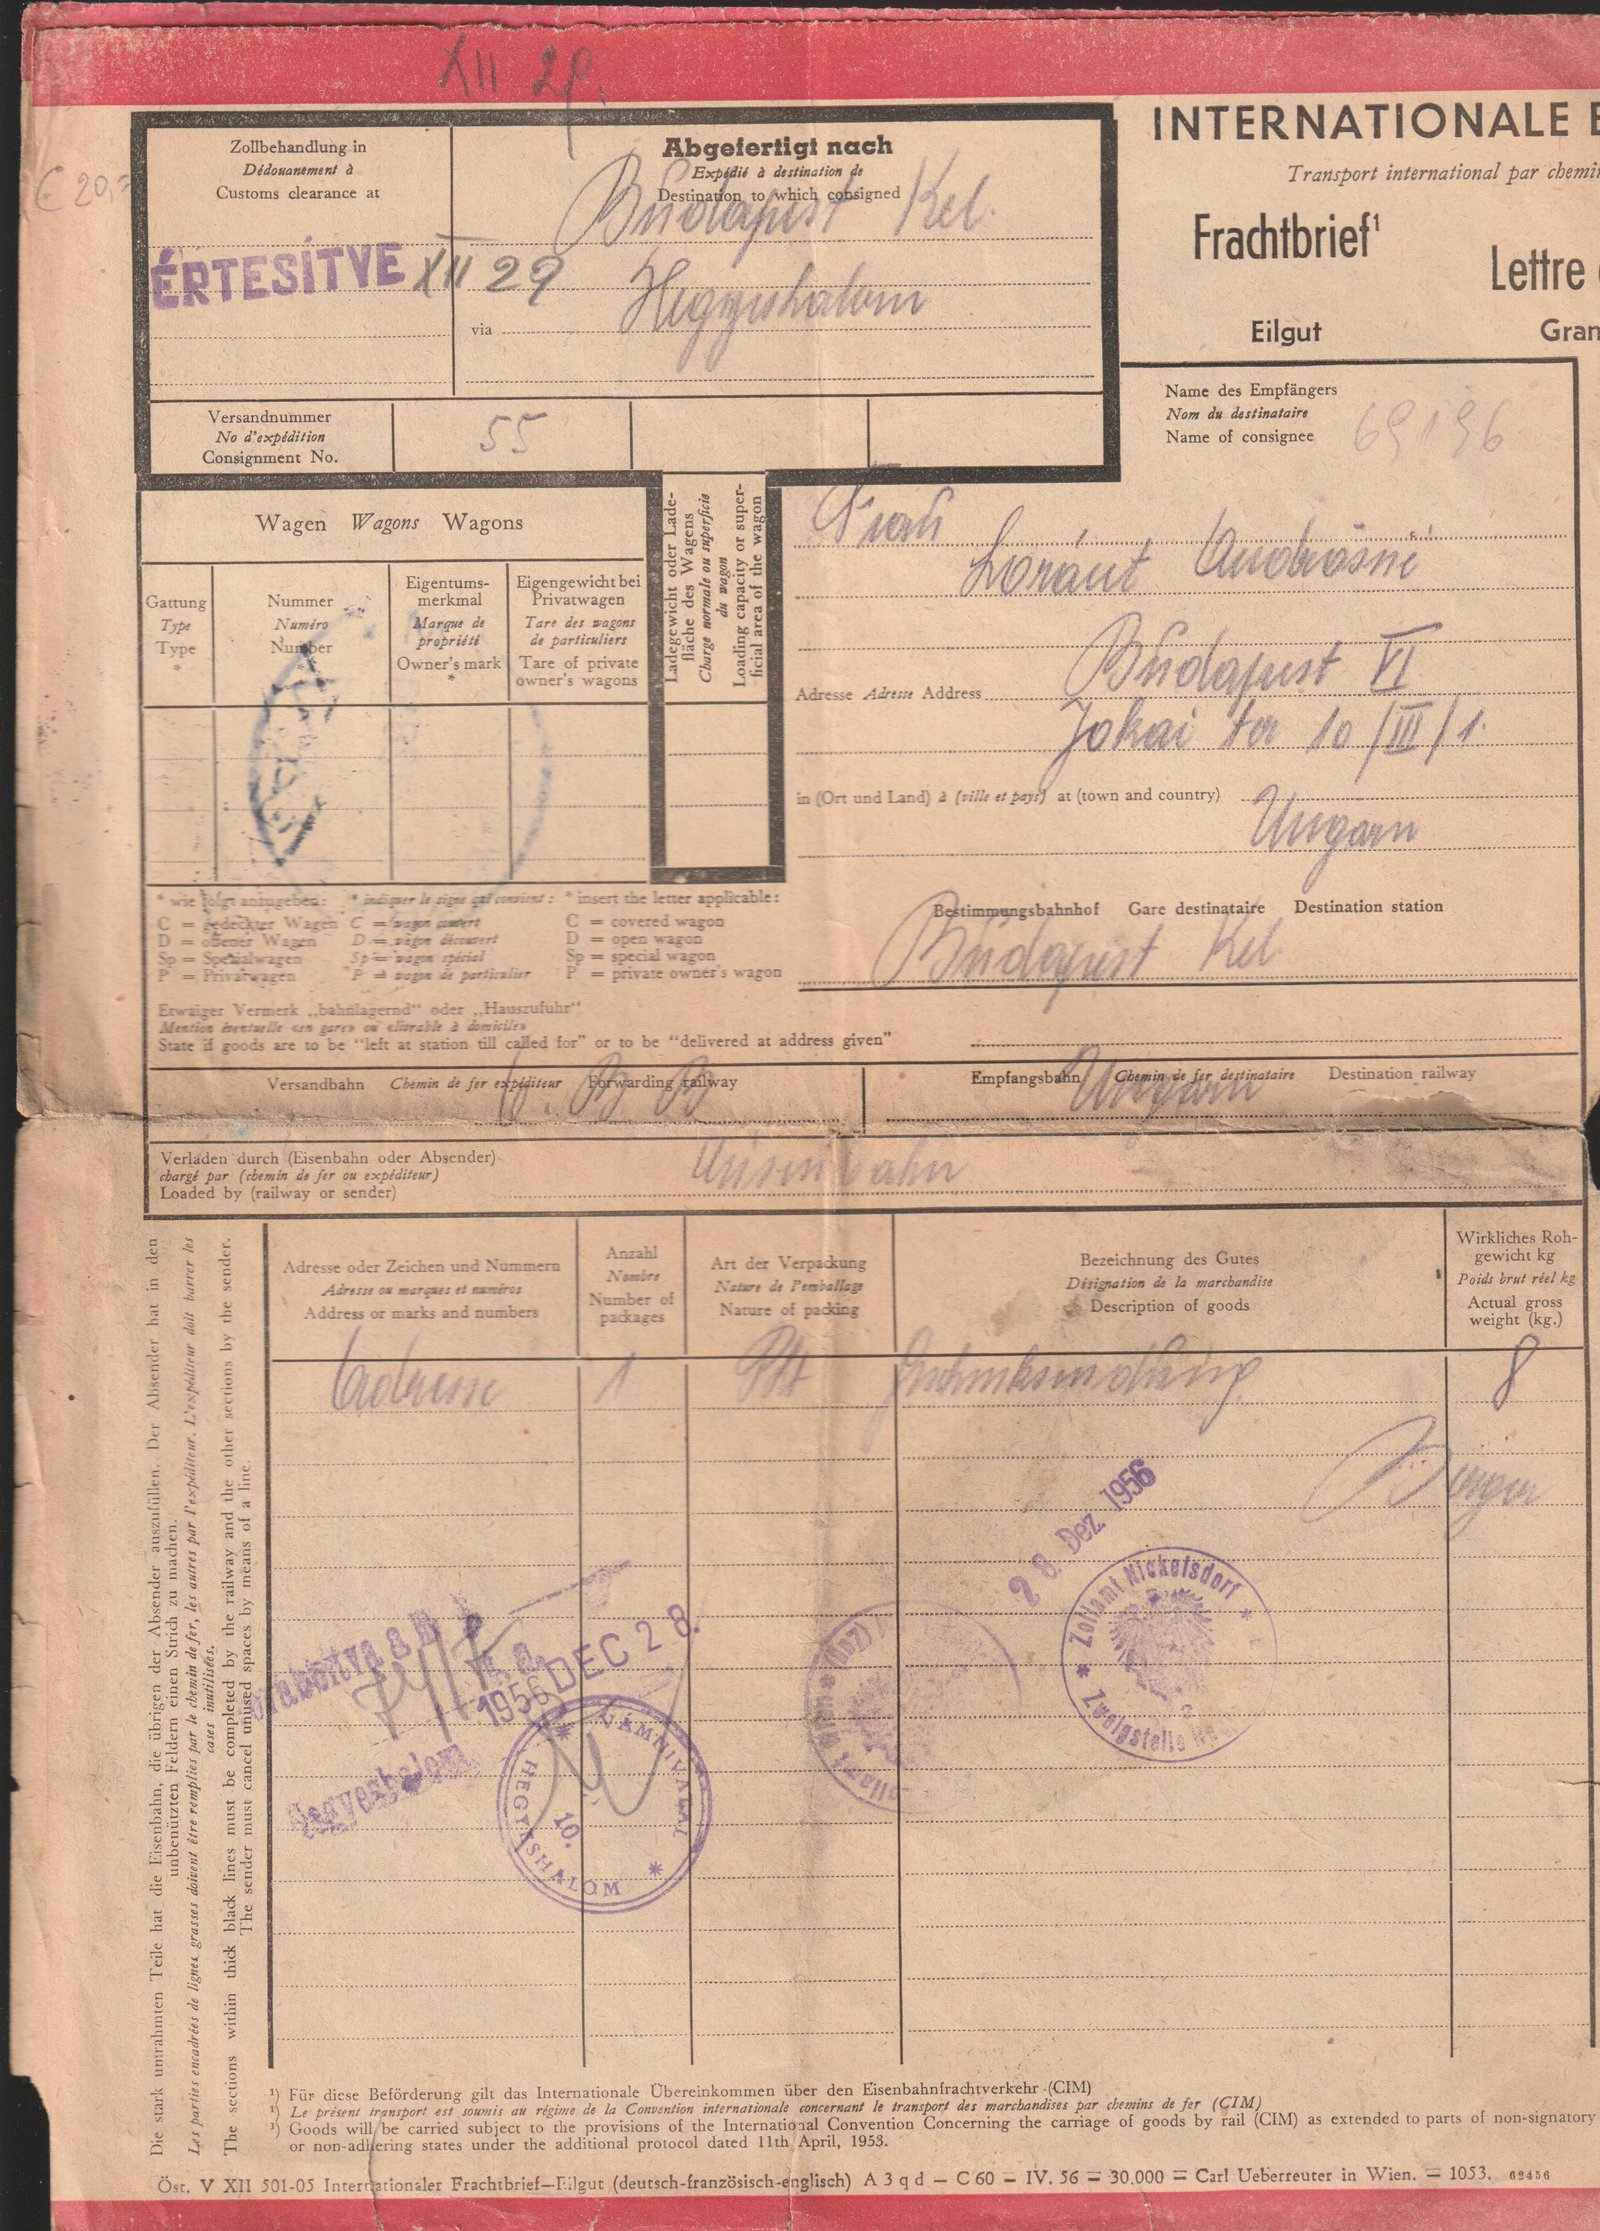 XII 29.
€ 20,-
Zollbehandlung in
Dédouanement à
Customs clearance at
ÉRTESÍTVE XII 29
Abgefertigt nach
Expédié à destination de
Destination to which consigned
Budapest Kel.
via Hegyeshalom
Versandnummer
No d'expédition
Consignment No.
55
INTERNATIONALE E
Transport international par chemi
Frachtbrief¹
Lettre
Eilgut
Gran
Name des Empfängers
Nom du destinataire
Name of consignee
Frau
Loránt Andrásné
Budapest VI
Adresse Adresse Address
Jokai ter 10/III/1.
in (Ort und Land) à (ville et pays) at (town and country)
Ungarn
Bestimmungsbahnhof Gare destinataire Destination station
Budapest Kel
Wagen Wagons Wagons
Gattung
Type
Type
*
Nummer
Numéro
Number
Eigentums-
merkmal
Marque de
propriété
Owner's mark
*
Eigengewicht bei
Privatwagen
Tare des wagons
de particuliers
Tare of private
owner's wagons
Ladegewicht oder Lade-
fläche des Wagens
Charge normale ou superficie
du wagon
Loading capacity or super-
ficial area of the wagon
* wie folgt anzugeben: * indiquer le signe qui convient: * insert the letter applicable:
C = gedeckter Wagen C = wagon couvert C = covered wagon
D = offener Wagen D = wagon découvert D = open wagon
Sp = Spezialwagen Sp = wagon spécial Sp = special wagon
P = Privatwagen P = wagon de particulier P = private owner's wagon
Etwaiger Vermerk „bahnlagernd" oder „Hauszufuhr"
Mention éventuelle «en gare» ou «livrable à domicile»
State if goods are to be "left at station till called for" or to be "delivered at address given"
Versandbahn Chemin de fer expéditeur Forwarding railway
B B
Empfangsbahn Chemin de fer destinataire Destination railway
Ungarn
Verladen durch (Eisenbahn oder Absender)
chargé par (chemin de fer ou expéditeur)
Loaded by (railway or sender)
Eisenbahn
Die stark umrahmten Teile hat die Eisenbahn, die übrigen der Absender auszufüllen. Der Absender hat in den
unbenützten Feldern einen Strich zu machen.
Les parties encadrées de lignes grasses doivent être remplies par le chemin de fer, les autres par l'expéditeur. L'expéditeur doit barrer les
cases inutilisées.
The sections within thick black lines must be completed by the railway and the other sections by the sender.
The sender must cancel unused spaces by means of a line.
Adresse oder Zeichen und Nummern
Adresse ou marques et numéros
Address or marks and numbers
Anzahl
Nombre
Number of
packages
Art der Verpackung
Nature de l'emballage
Nature of packing
Bezeichnung des Gutes
Désignation de la marchandise
Description of goods
Wirkliches Roh-
gewicht kg
Poids brut réel kg
Actual gross
weight (kg.)
Adresse 1 Pkt Geschenksendung 8
28. Dez. 1956
Zollamt Nickelsdorf
Zweigstelle
1956 DEC 28.
Hegyeshalom
VÁMHIVATAL
HEGYESHALOM
10.
¹) Für diese Beförderung gilt das Internationale Übereinkommen über den Eisenbahnfrachtverkehr (CIM)
¹) Le présent transport est soumis au régime de la Convention internationale concernant le transport des marchandises par chemins de fer (CIM)
¹) Goods will be carried subject to the provisions of the International Convention Concerning the carriage of goods by rail (CIM) as extended to parts of non-signatory
or non-adhering states under the additional protocol dated 11th April, 1953.
Öst. V XII 501-05 Internationaler Frachtbrief—Eilgut (deutsch-französisch-englisch) A 3 q d — C 60 — IV. 56 — 30.000 — Carl Ueberreuter in Wien. — 1053. 62456